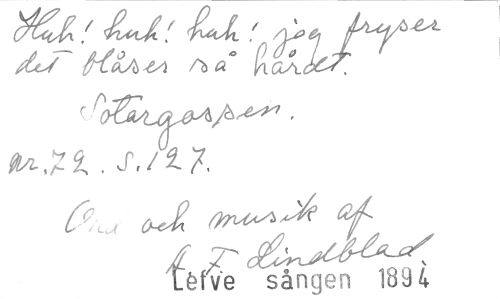 Huh! huh! huh! jag fryser
det blåser så hårdt.
Sotargossen.
nr.72. s.127.
Ord och musik af
A. F. Lindblad.
Lefve sången 1894